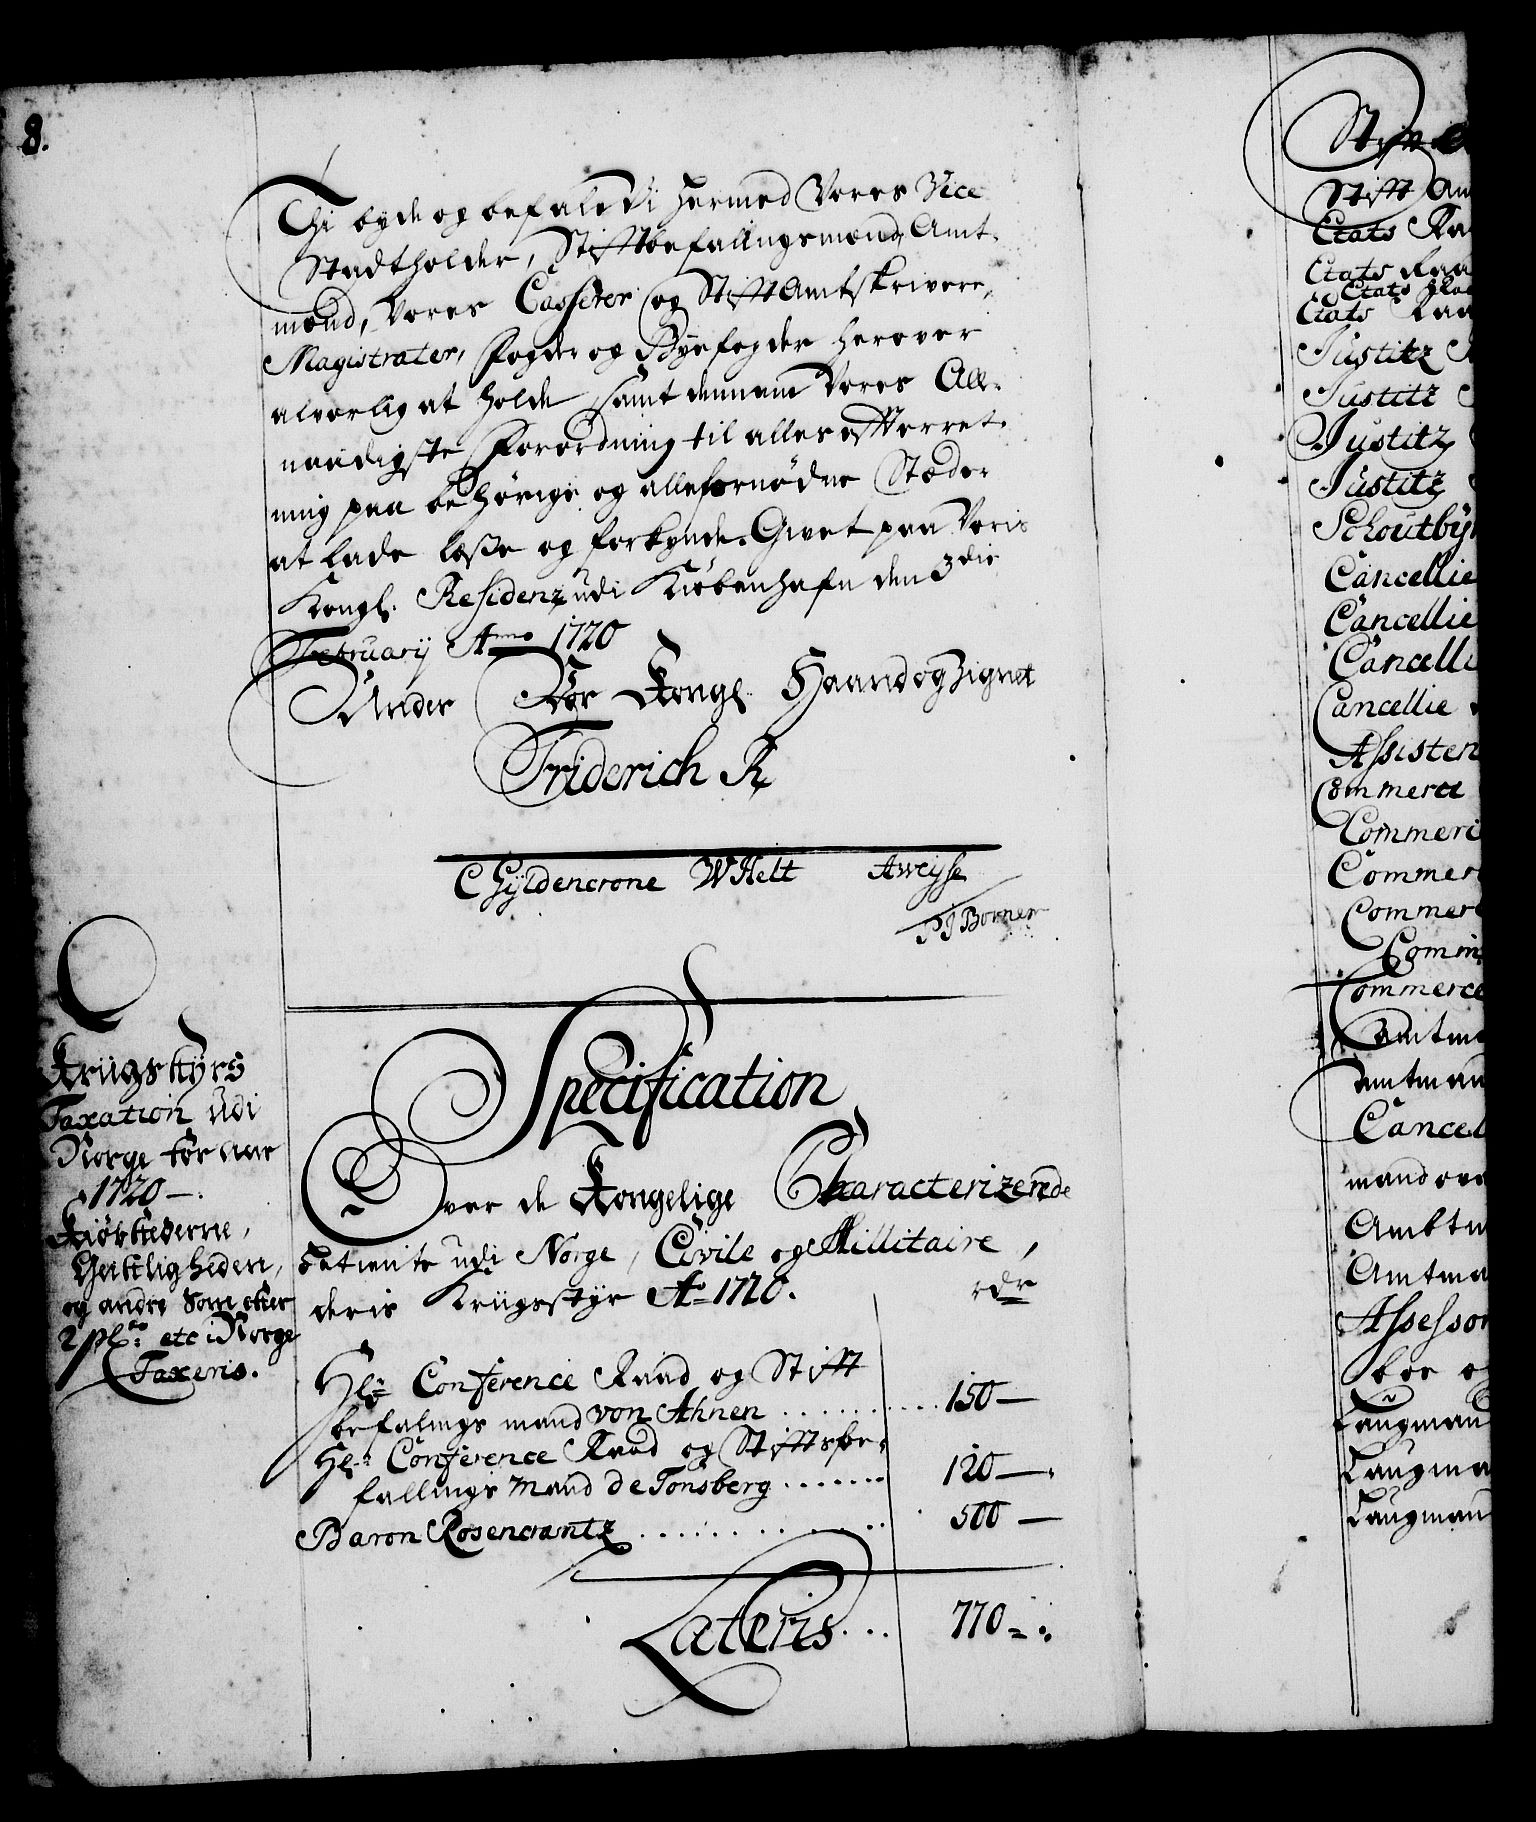 8.
Thi byde og befale Vi hermed Vores Vice
Stadtholder, Stifftbefallingsmænd, Amt-
mænd, Vores Casserer og StifftAmtskrivere,
Magistrater, Fogder og Byefogder herover
alvorlig at holde, samt dennem Vores Aller-
naadigste Forordning til alles efterret-
ning paa behørige og alle fornødne Stæder
at lade læsse og forkynde. Givet paa Voris
Kongl. Residenz udi Kiøbenhafn den 3die
February Anno 1720
Under Vor Kongl. Haand og Zignet
Friderich R
C Gyldencrone W Helt A Weyse
P J Borner
Krügsstyrs
Taxation udi
Norge for aar
1720 –.
Kiøbstederne,
Geistligheden,
og andre Som efter
2 pl. etc i Norge
Taxeris.
Specification
Over de Kongelige Characterizerede
betiente udi Norge, Civile og Millitaire,
deris Krügsstyr Ao 1720. rdr
Hr. Conference Raad og Stifft
befalings mand von Ahnen ........... 150 –
Hr. Conference Raad og Stifftsbe-
fallings Mand de Tonsberg ....... 120 –
Baron Rosencrantz ............. 500 –
Lateris... 770 –
Stifft Am
Etats Ra
Etats Raa
Etats Raa
Etats Raa
Justitz R
Justitz
Justitz
Justitz
Schoutby
Cancellie
Cancellie
Cancelli
Cancellie
Assisten
Commerce
Commerc
Commer
Commerc
Comm
Commerce
Amtma
Amtman
Cancel
mand ov
Ambtm
Amtma
Assessor
Laugmand
Laugma
Laugmand